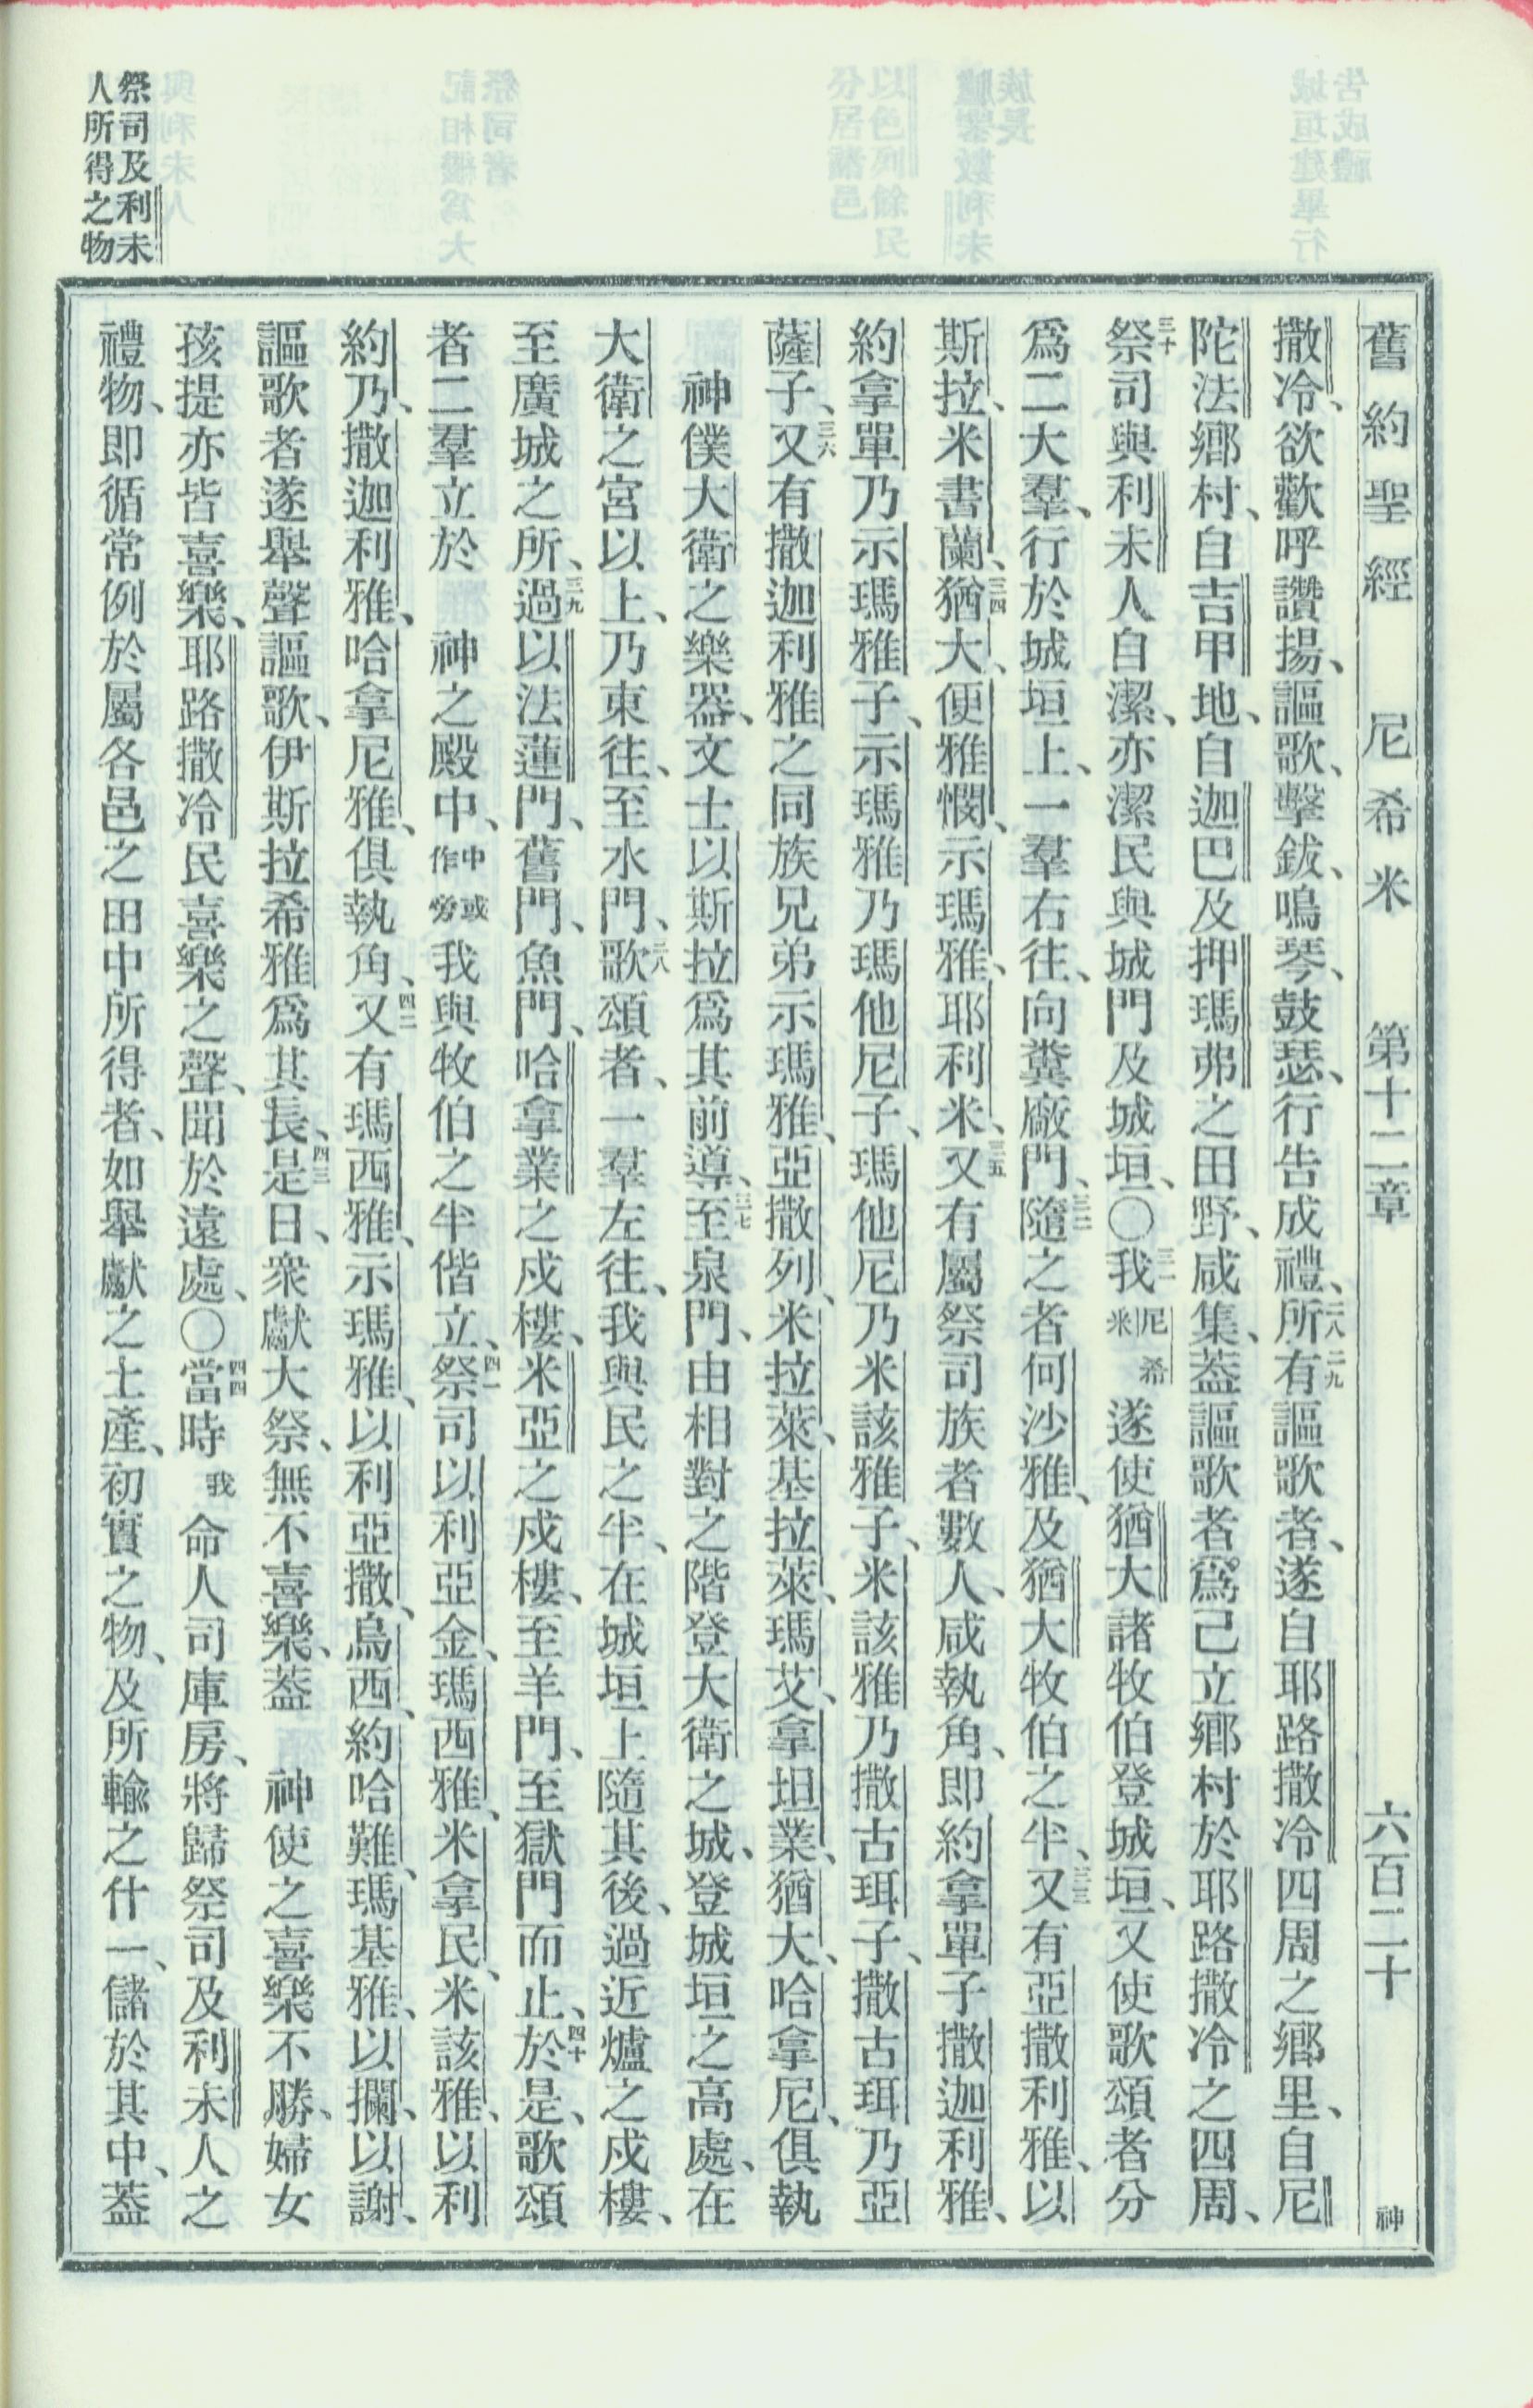 祭司及利未
人所得之物
舊約聖經 尼希米 第十二章 六百二十 神
撒冷、欲歡呼讚揚、謳歌、擊鈸、鳴琴、鼓瑟、行告成禮、二八所有二九謳歌者、遂自耶路撒冷四周之鄉里、自尼
陀法鄉村、自吉甲地、自迦巴及押瑪弗之田野、咸集、蓋謳歌者爲己立鄉村於耶路撒冷之四周、
三十祭司與利未人自潔、亦潔民與城門及城垣、〇三一我尼希米遂使猶大諸牧伯登城垣、又使歌頌者分
爲二大羣、行於城垣上、一羣右往、向糞廠門、三二隨之者何沙雅、及猶大牧伯之半、三三又有亞撒利雅、以
斯拉、米書蘭、三四猶大、便雅憫、示瑪雅、耶利米、三五又有屬祭司族者數人、咸執角、即約拿單子撒迦利雅、
約拿單乃示瑪雅子、示瑪雅乃瑪他尼子、瑪他尼乃米該雅子、米該雅乃撒古珥子、撒古珥乃亞
薩子、三六又有撒迦利雅之同族兄弟示瑪雅、亞撒列、米拉萊、基拉萊、瑪艾、拿坦業、猶大、哈拿尼、俱執
神僕大衛之樂器、文士以斯拉爲其前導、三七至泉門、由相對之階登大衛之城、登城垣之高處、在
大衛之宮以上、乃東往、至水門、三八歌頌者、一羣左往、我與民之半、在城垣上隨其後、過近爐之戍樓、
至廣城之所、三九過以法蓮門、舊門、魚門、哈拿業之戍樓、米亞之戍樓、至羊門、至獄門而止、四十於是、歌頌
者二羣立於 神之殿中、中或作旁我與牧伯之半偕立、四一祭司以利亞金、瑪西雅、米拿民、米該雅、以利
約乃、撒迦利雅、哈拿尼雅、俱執角、四二又有瑪西雅、示瑪雅、以利亞撒、烏西、約哈難、瑪基雅、以攔、以謝、
謳歌者遂舉聲謳歌、伊斯拉希雅爲其長、四三是日、衆獻大祭、無不喜樂、蓋 神使之喜樂不勝、婦女
孩提亦皆喜樂、耶路撒冷民喜樂之聲、聞於遠處、〇四四當時我命人司庫房、將歸祭司及利未人之
禮物、即循常例於屬各邑之田中所得者、如舉獻之土產、初實之物、及所輸之什一、儲於其中、蓋